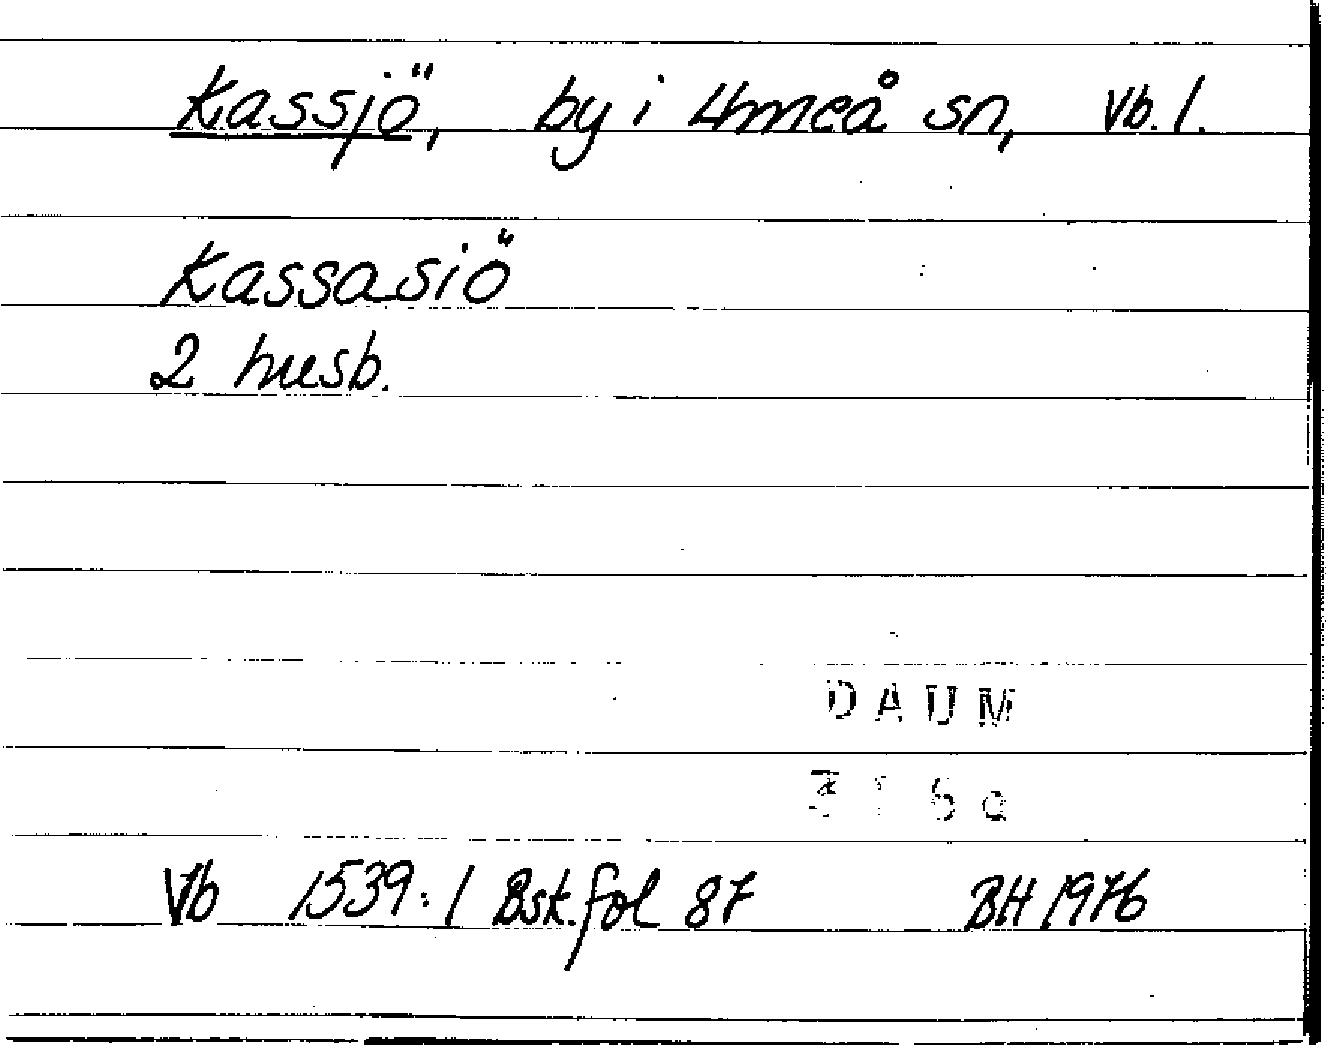 Kassjö, by i Umeå sn, Vb. l.
Kassasiö
2 husb.
DAUM
Vb 1539:1 Bsk. fol 87 BH 1976